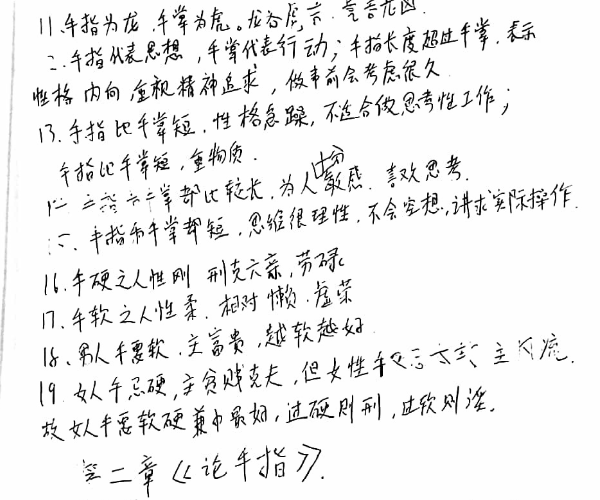 11.手指为龙,手掌为虎。龙吞虎,吉.
二.手指代表思想,手掌代表行动;手指长度超过手掌,表示
性格内向,重视精神追求,做事前会考虑很久.
13.手指比手掌短,性格急躁,不适合做思考性工作;
手指比手掌短,重物质.
手掌都比较长,为人十分敏感.喜欢思考.
手指和手掌都短,思维很理性,不会空想,讲求实际操作.
16.手硬之人性刚 刑克六亲,劳碌
17.手软之人性柔.相对懒.虚荣
18、男人手要软.主富贵,越软越好
19.女人手忌硬,主贫贱克夫,但女性手 主 流.
故女人手要软硬兼中最好,过硬则刑,过软则淫。
第二章《论手指》.